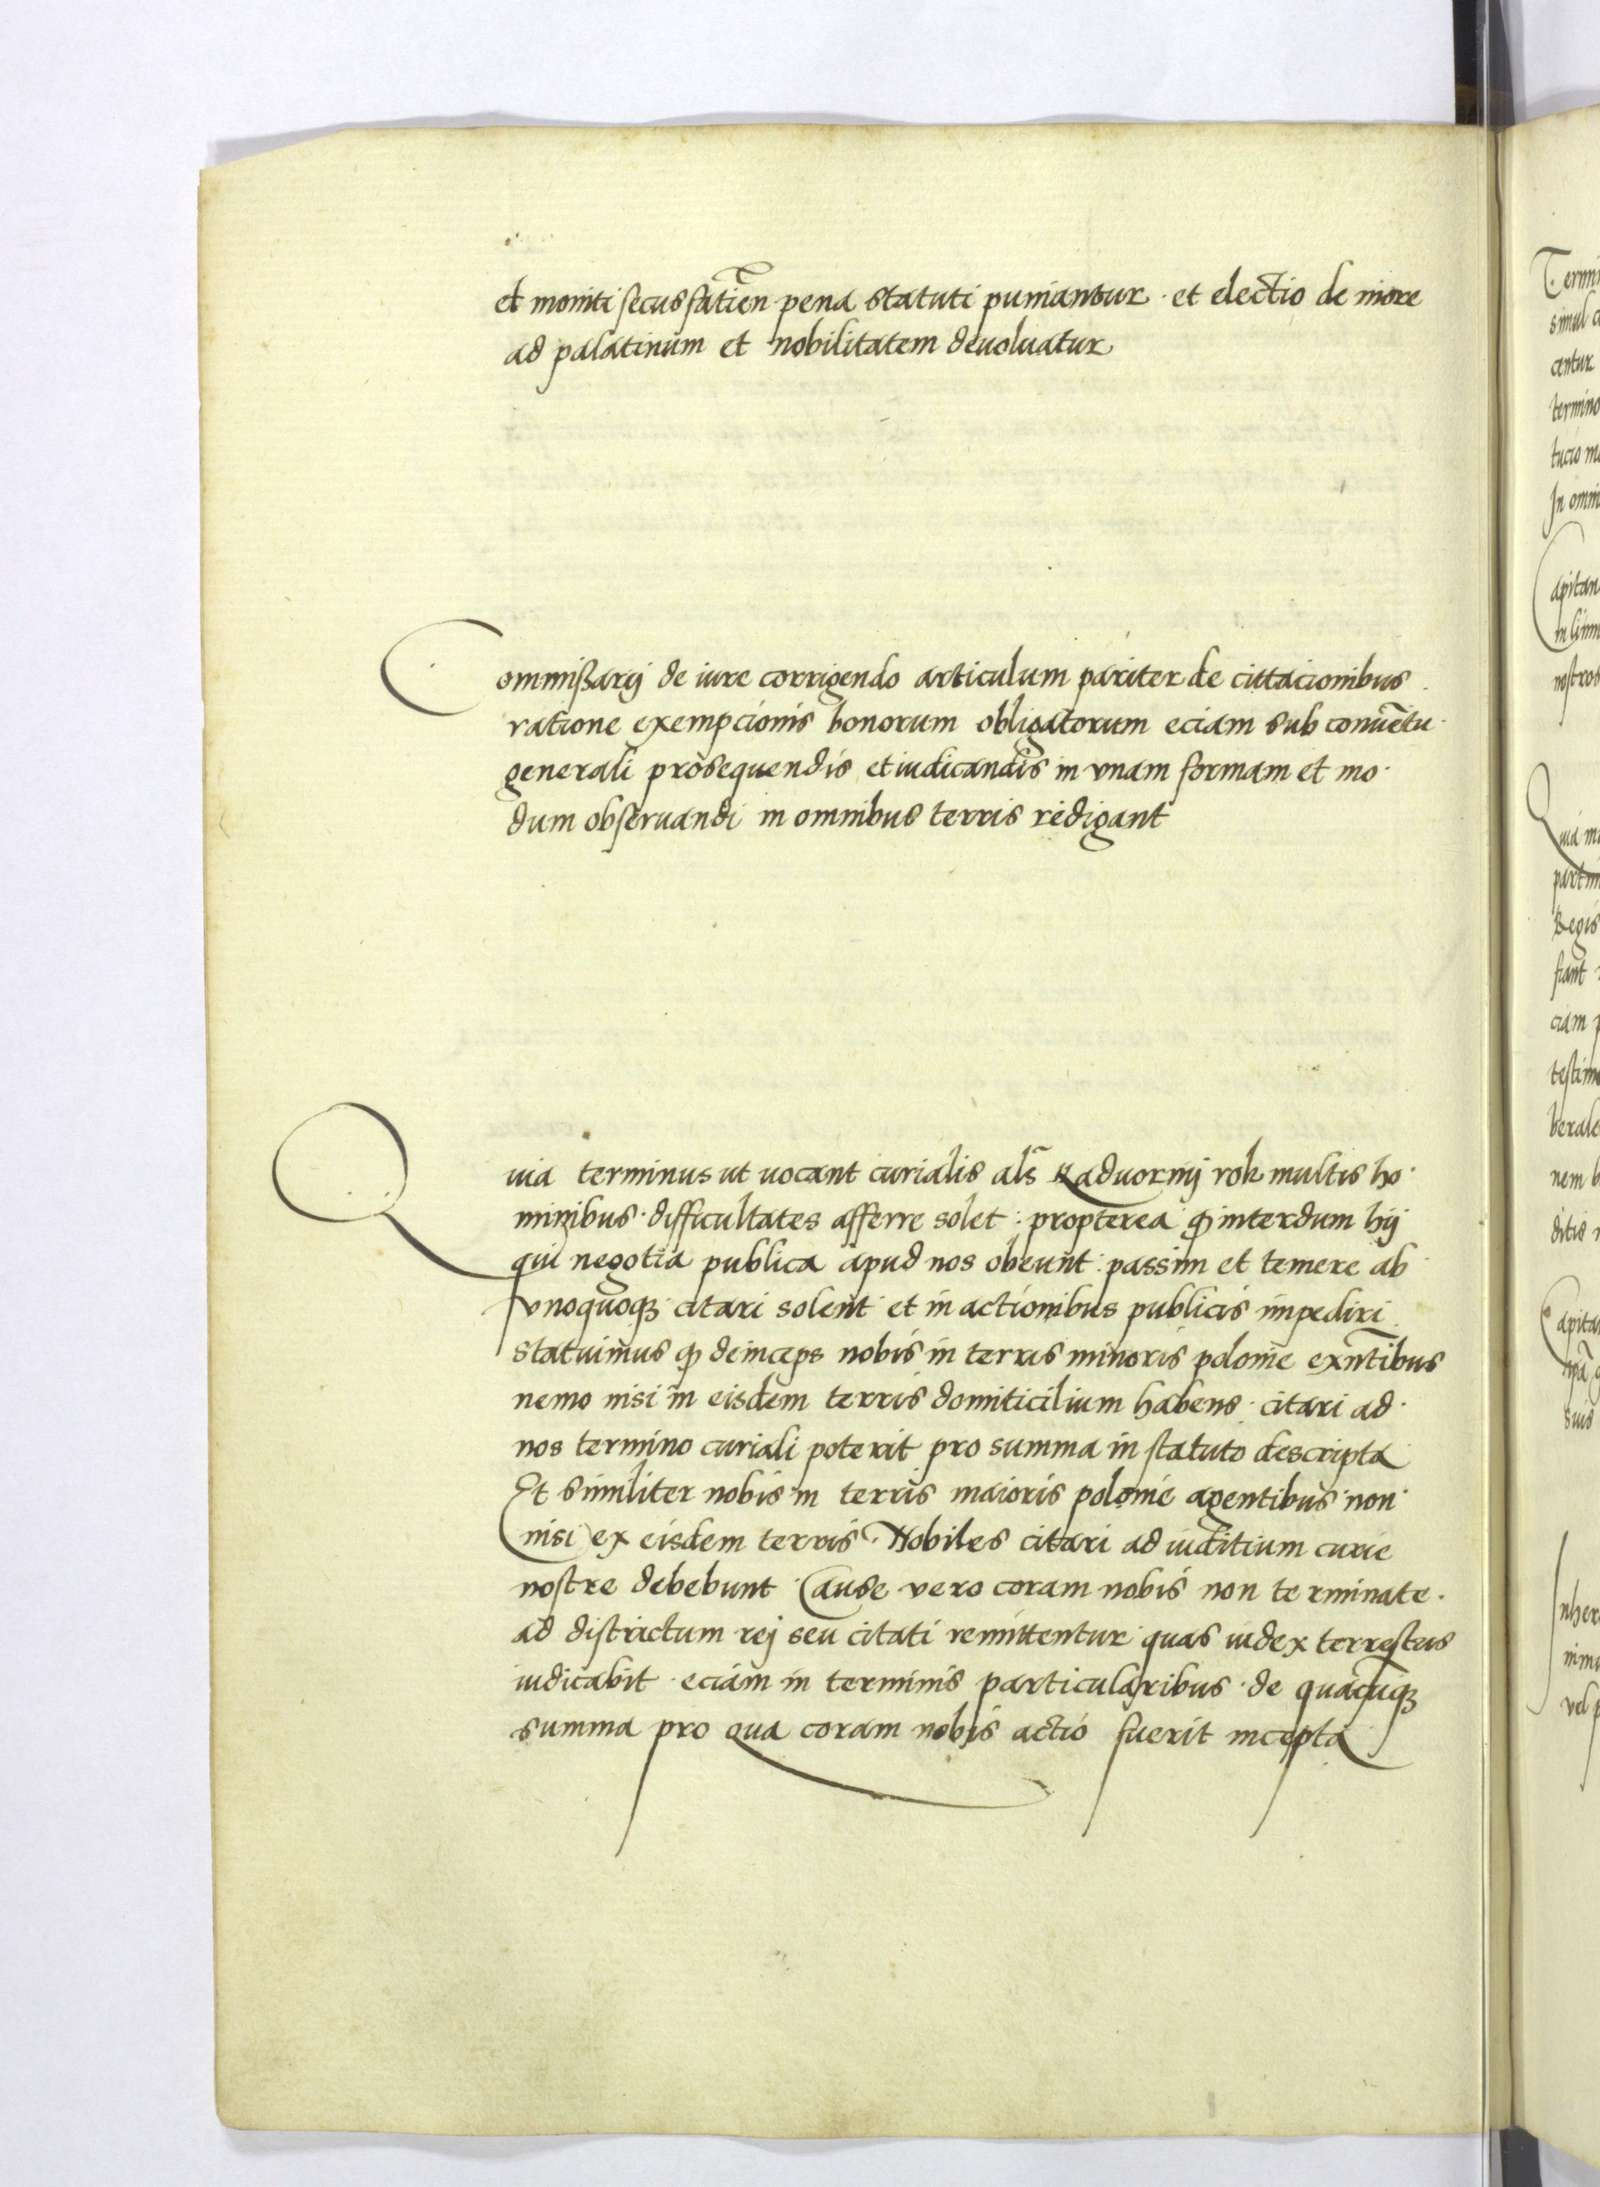 et moniti secus fatien̄ pena statuti puniantur · et electio de more
ad palatinum et nobilitatem deuoluatur
Commissarij de iure corrigendo articulum pariter de cittacionibus
ratione exempcionis bonorum obligatorum eciam sub conuētu
generali prosequendis et iudicandis in vnam formam et mo·
dum obseruandi in omnibus terris redigant
Quia terminus ut uocant curialis als̄ zaduornij rok multis ho·
minibus · difficultates afferre solet : propterea ꝙ interdum hij
qui negotia publica apud nos obeunt : passim et temere ab
vnoquoqꝫ citari solent et in actionibus publicis impediri
statuimus ꝙ deinceps nobis in terris minoris polonie exn̄tibus
nemo nisi in eisdem terris domiticilium habens · citari ad·
nos termino curiali poterit pro summa in statuto descripta
Et similiter nobis in terris maioris polonie agentibus non
nisi ex eisdem terris · Nobiles citari ad iuditium curie
nostre debebunt · Cause vero coram nobis non te rminate ·
ad districtum rej seu citati remittentur quas iudex terrestris
iudicabit · eciam in terminis particularibus · de quacuqꝫ
summa pro qua coram nobis actio fuerit incepta
Termi
simul
centur
termino
tucio
In omni
Capitan
nostros
Quia
Regis
fiant
ciam
nem
ditis
Capita
suis
vel